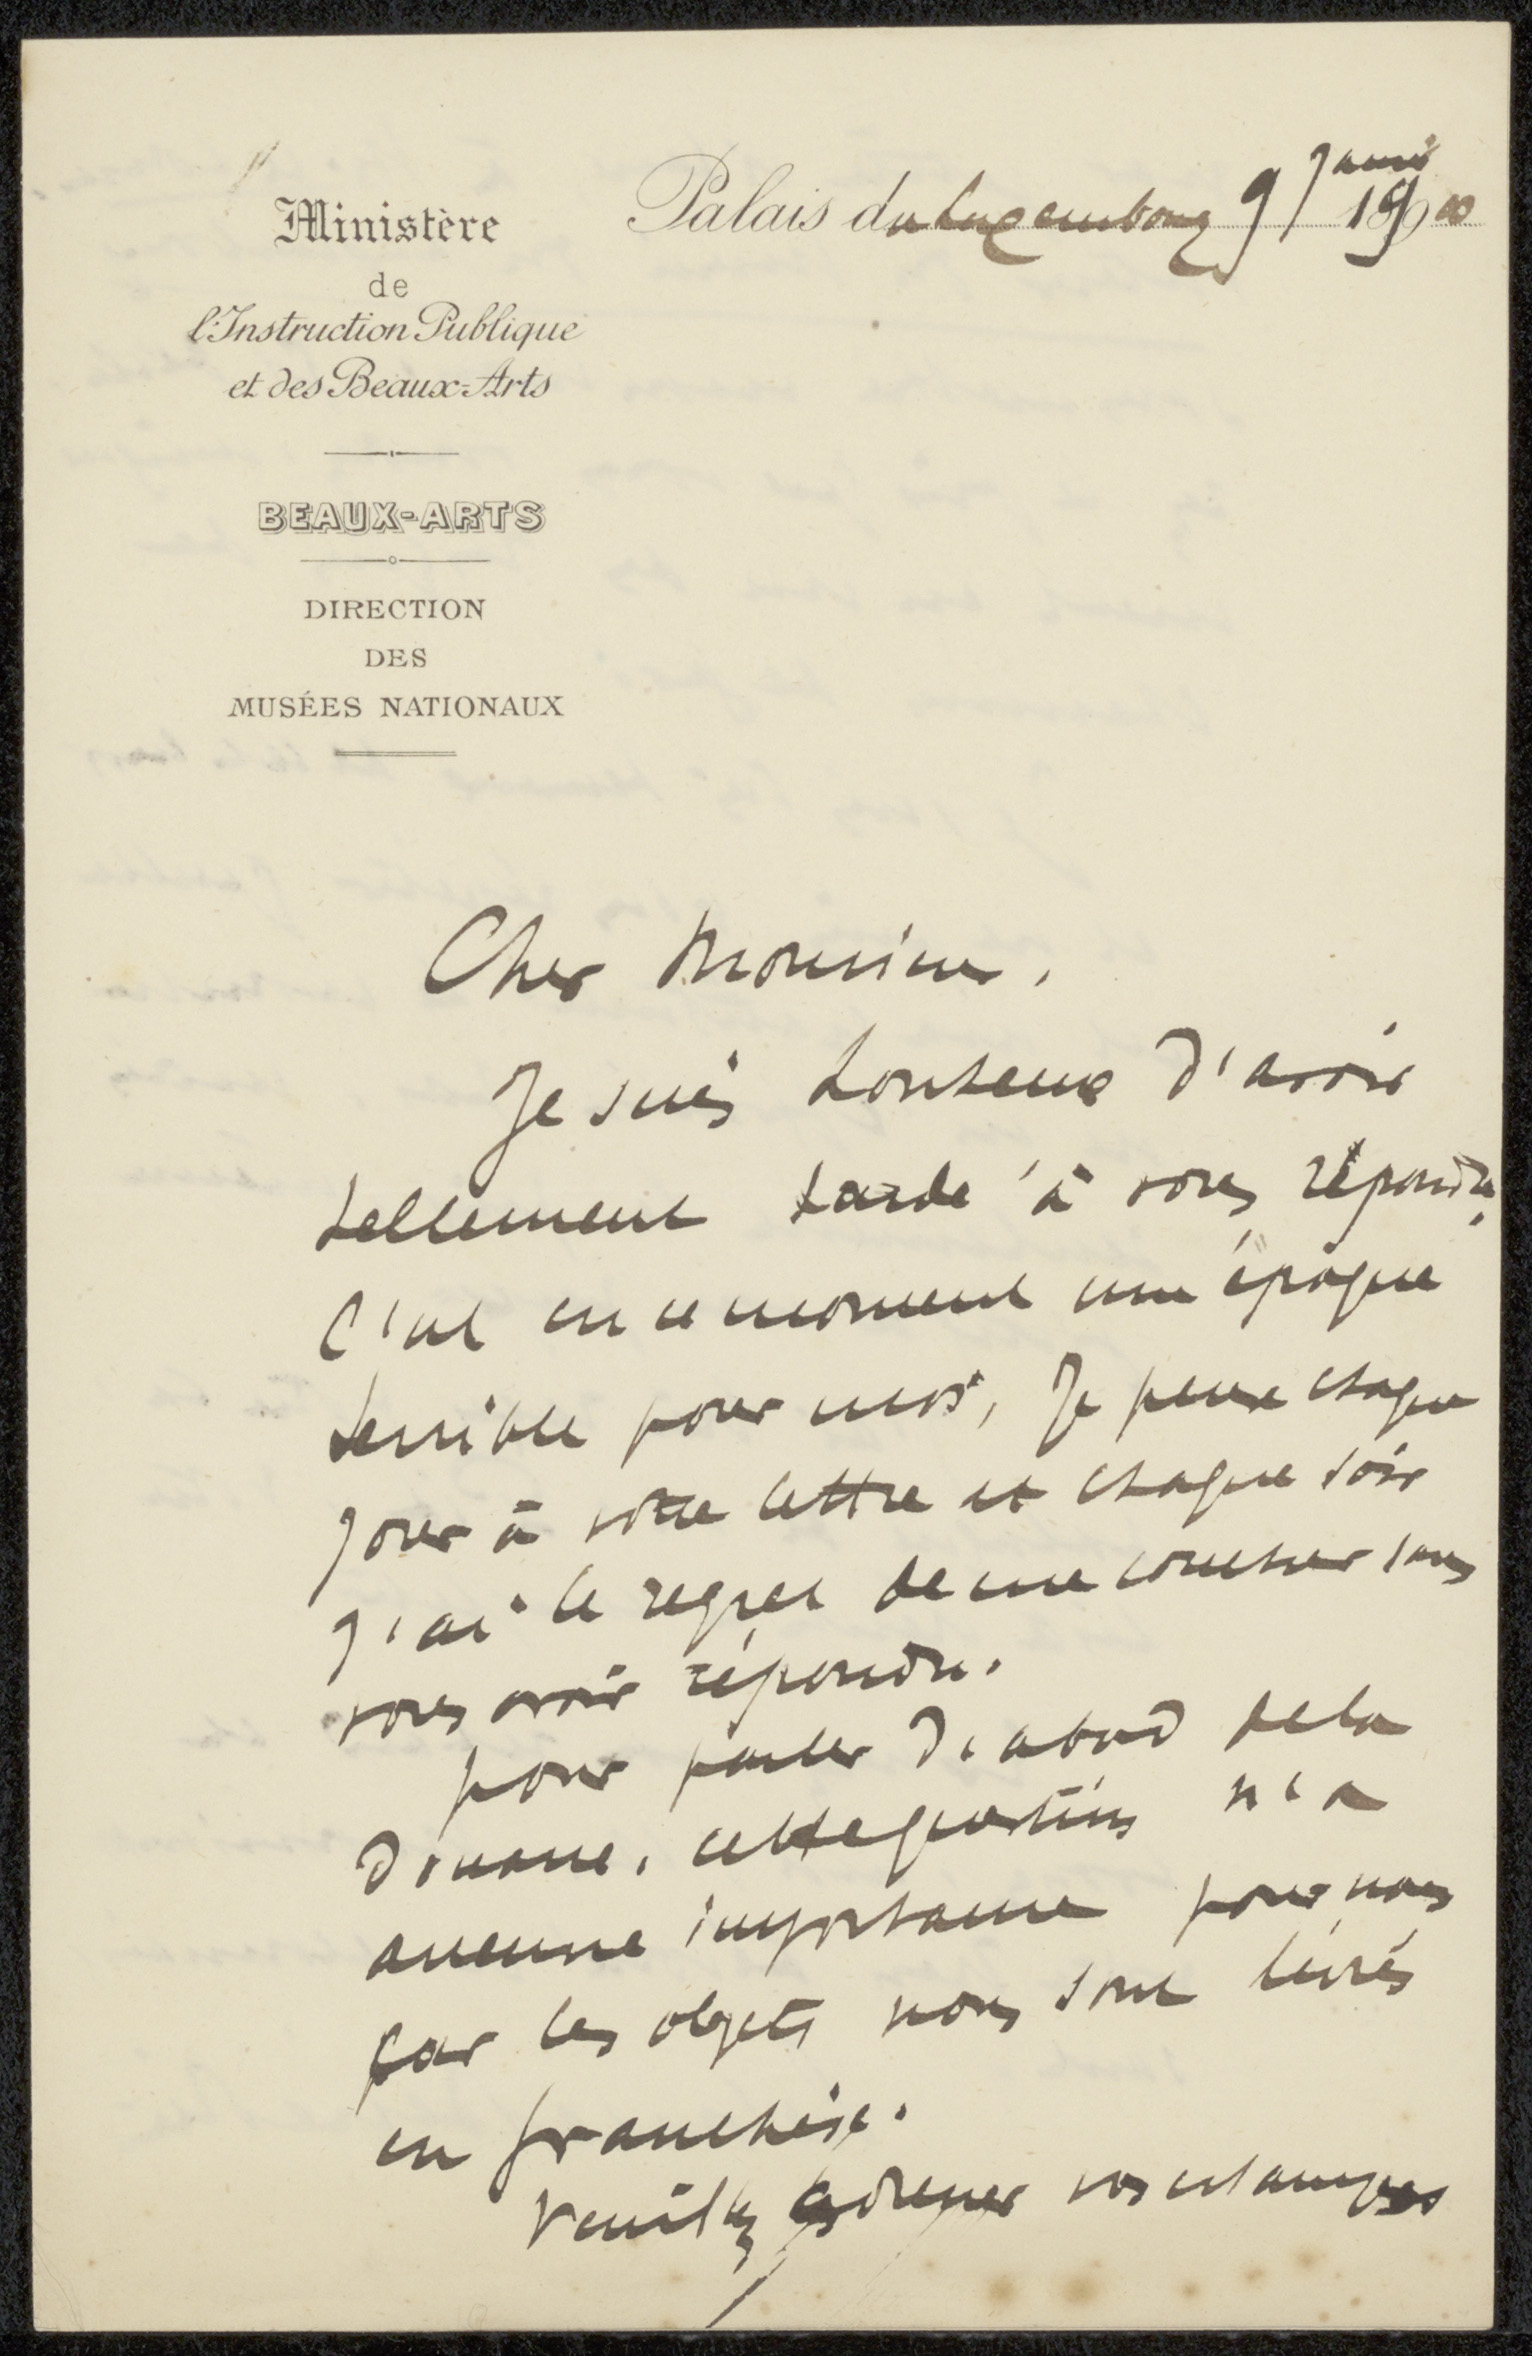 Ministère
de
l'Instruction Publique
et des Beaux-Arts
BEAUX-ARTS
DIRECTION
DES
MUSÉES NATIONAUX
Palais du Luxembourg 9 janvier 1900
Cher Monsieur,
Je suis honteux d'avoir
tellement tardé à vous répondre.
C'est en ce moment une époque
terrible pour moi, Je pense chaque
jour à votre lettre et chaque soir
j'ai le regret de me coucher sans
vous avoir répondu.
Pour parler d'abord de la
douane, cette question n'a
aucune importance pour nous
car les objets nous sont livrés
en franchise.
Veuillez adresser vos estampes